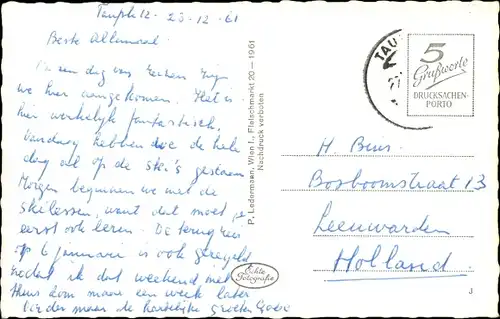 Tauplitz - 23-12-61
Beste Allemaal.
Na een dag van reizen zijn
we hier aangekomen. Het is
hier werkelijk fantastisch.
Vandaag hebben we de hele
dag al op de ski's gestaan
Morgen beginnen we met de
skilessen, want dat moet je
eerst ook leren. De terug reis
op 6 januari is ook geregeld
zodat ik dat weekend met
thuis kom maar een week later
verder maar de hartelijke groeten
P. Ledermann, Wien I., Fleischmarkt 20 — 1961
Nachdruck verboten
Echte Fotografie
TAU
5
Grußworte
DRUCKSACHEN-
PORTO
H. Beus
Bosboomstraat 13
Leeuwarden
Holland
J